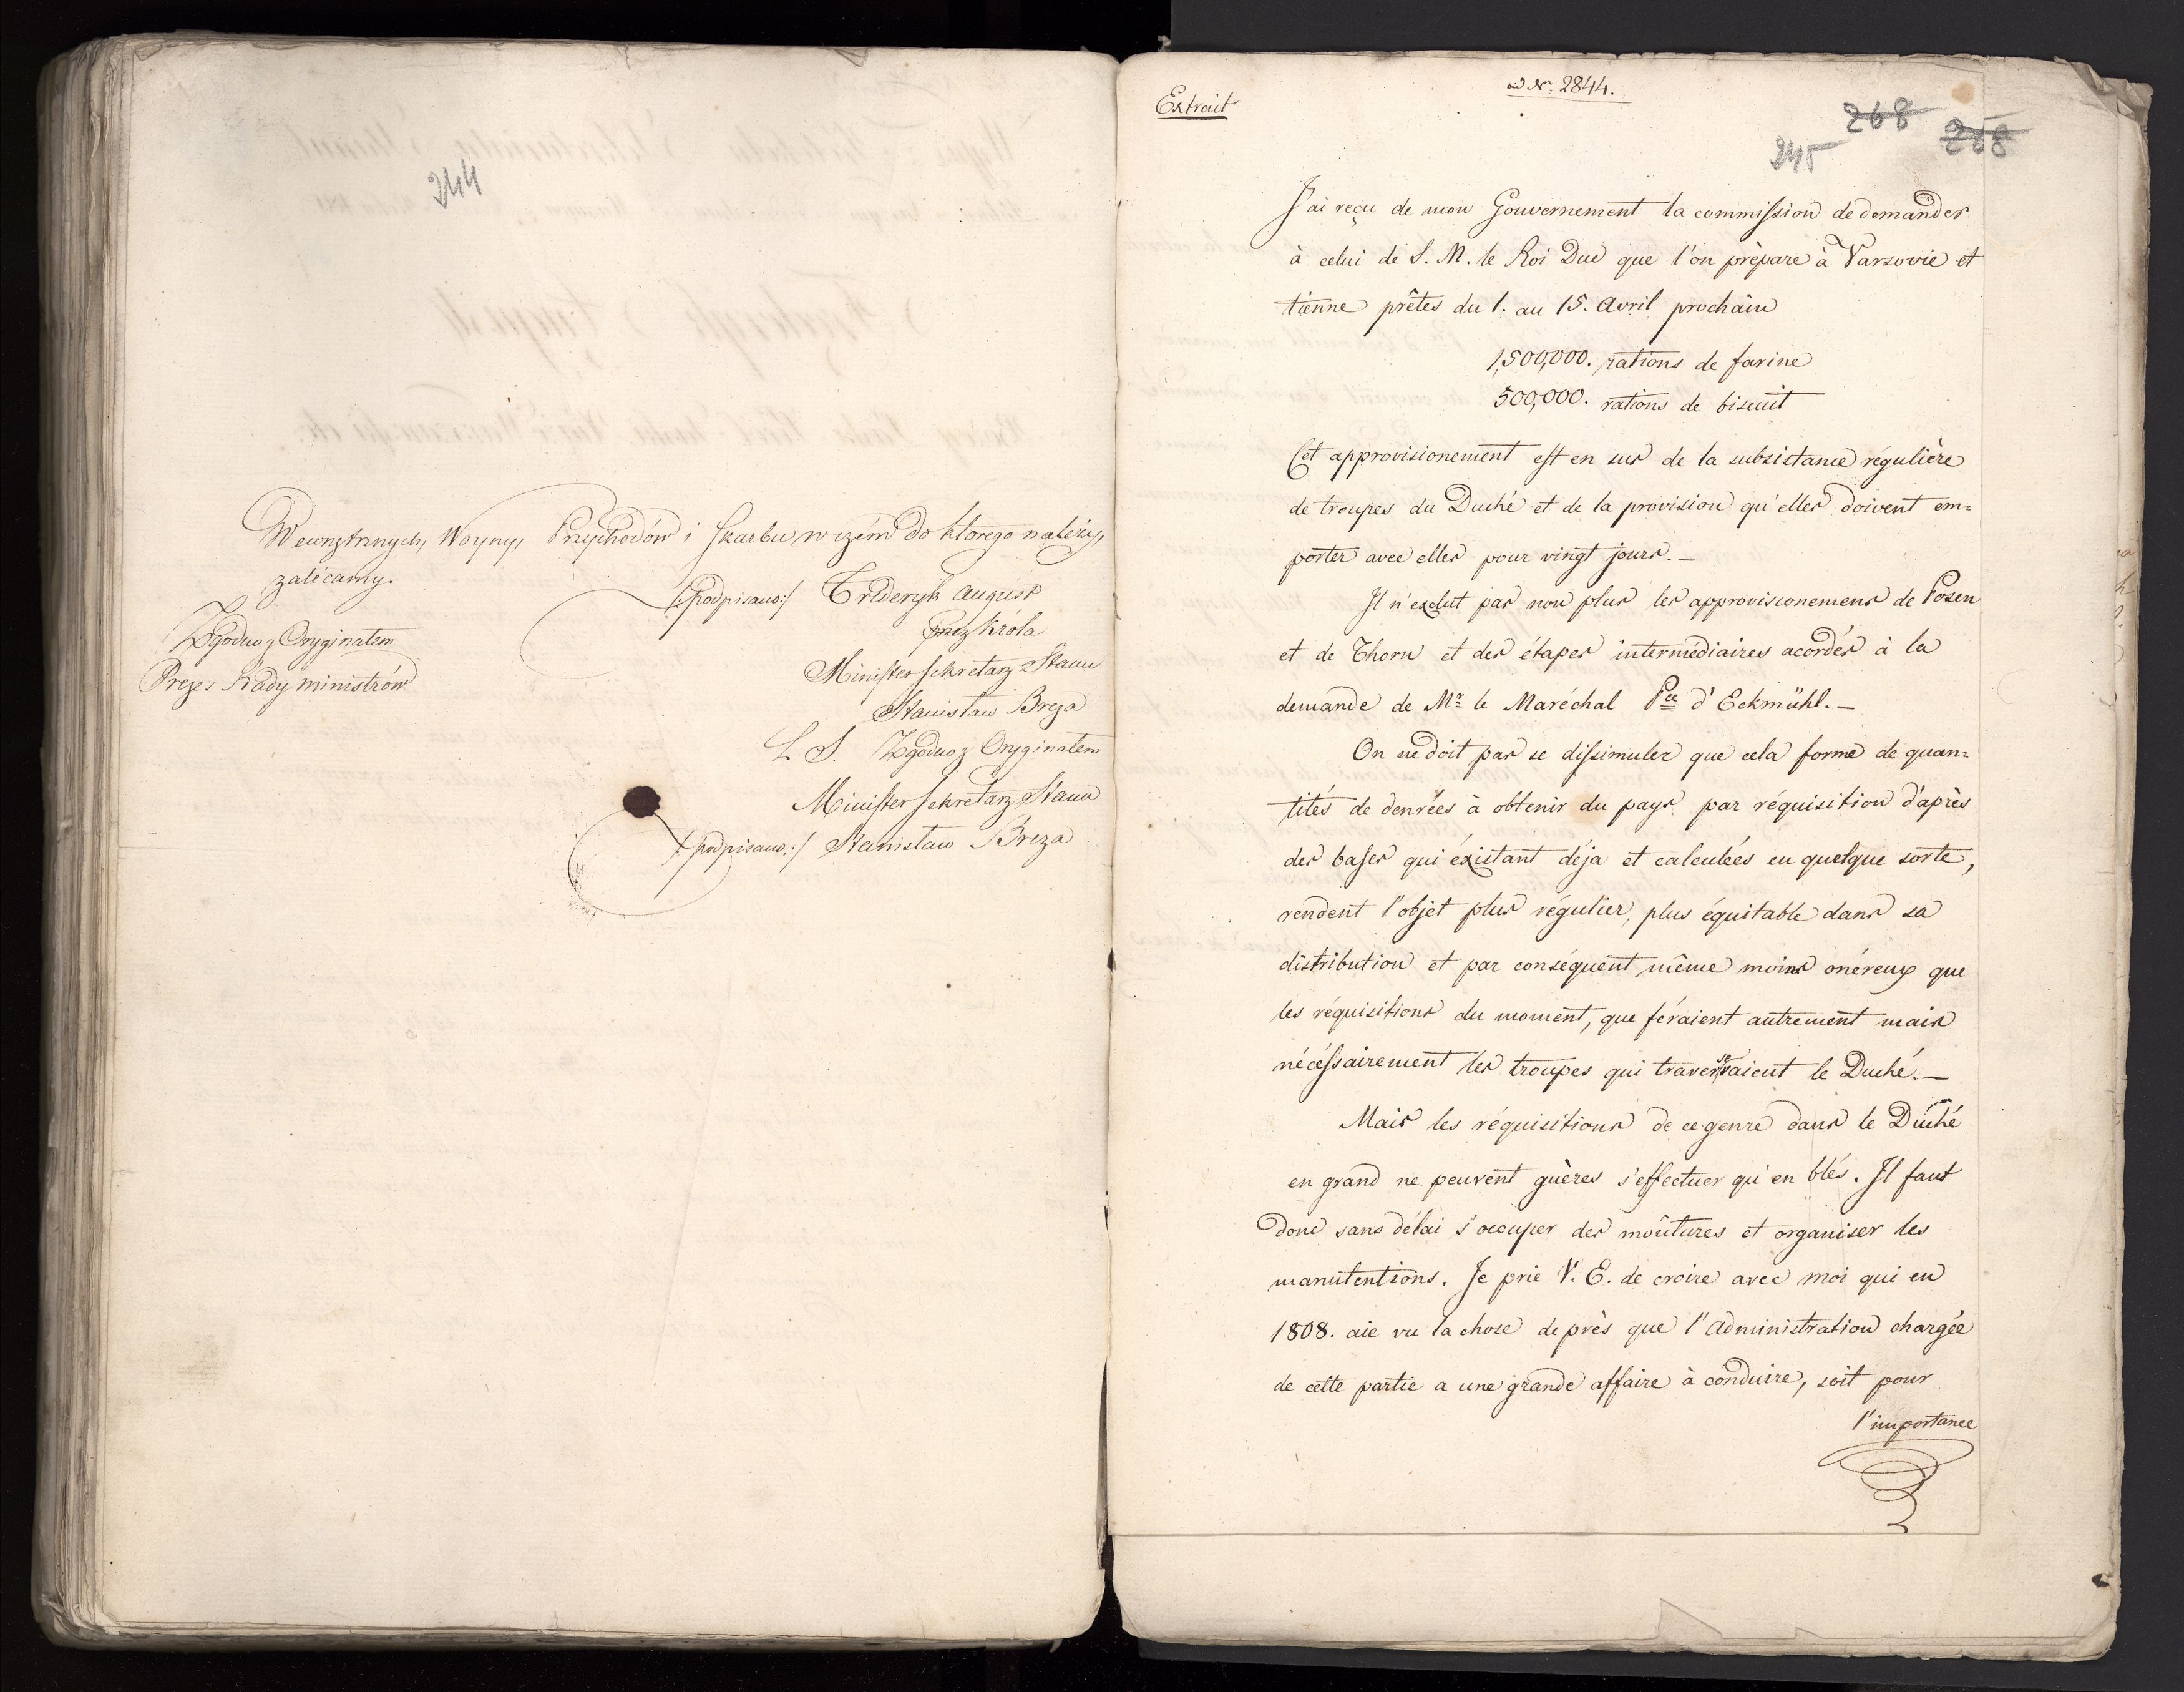 244
Wewnętrznych, Woyny, Przychodów i Skarbu w czém do ktorego należy,
zalécamy.
/:podpisano:/ Frideryk August
przez Króla
Minister Sekretarz Stanu
Stanisław Breza
L. S. Zgodno z Oryginałem
Minister Sekretarz Stanu
/:podpisano:/ Stanisław Breza
Zgodno z Oryginałem
Prezes Rady Ministrów
Extrait
ad Nr. 2844.
268
258
245
J'ai reçu de mon Gouvernement la commission de demander
à celui de S. M. le Roi Duc que l'on prépare à Varsovie et
tienne prêtes du 1. au 15. Avril prochain
1,500,000. rations de farine
500,000. rations de biscuit
Cet approvisionement est en sus de la subsistance régulière
de troupes du Duché et de la provision qu'elles doivent em=
porter avec elles pour vingt jours. —
Il n'exclut pas non plus les approvisionemens de Posen
et de Thorn et des étapes intermédiaires acordés à la
demande de Mr le Maréchal Pce d'Eckmühl. —
On ne doit pas se dissimuler que cela forme de quan=
tités de denrées à obtenir du pays par réquisition d'après
des bases qui éxistant déja et calculées en quelque sorte,
rendent l'objet plus régulier, plus équitable dans sa
distribution et par conséquent même moins onéreux que
les réquisitions du moment, que féraient autrement mais
nécéssairement les troupes qui traverseraient le Duché. —
Mais les réquisitions de ce genre dans le Duché
en grand ne peuvent guères s'effectuer qu'en blés. Il faut
donc sans délai s'occuper des moûtures et organiser les
manutentions. Je prie V. E. de croire avec moi qui en
1808. aie vu la chose de près que l'Administration chargée
de cette partie a une grande affaire à conduire, soit pour
l'importance